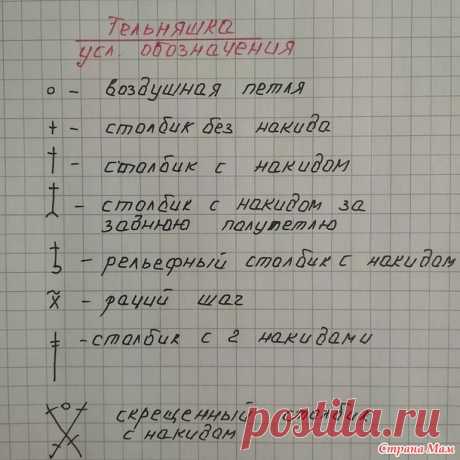 Тельняшка
усл. обозначения
о - воздушная петля
+ - столбик без накида
† - столбик с накидом
- столбик с накидом за
заднюю полупетлю
- рельефный столбик с накидом
x̃ - рачий шаг
- столбик с 2 накидами
скрещенный столбик
с накидом
postila.ru
Страна Мам